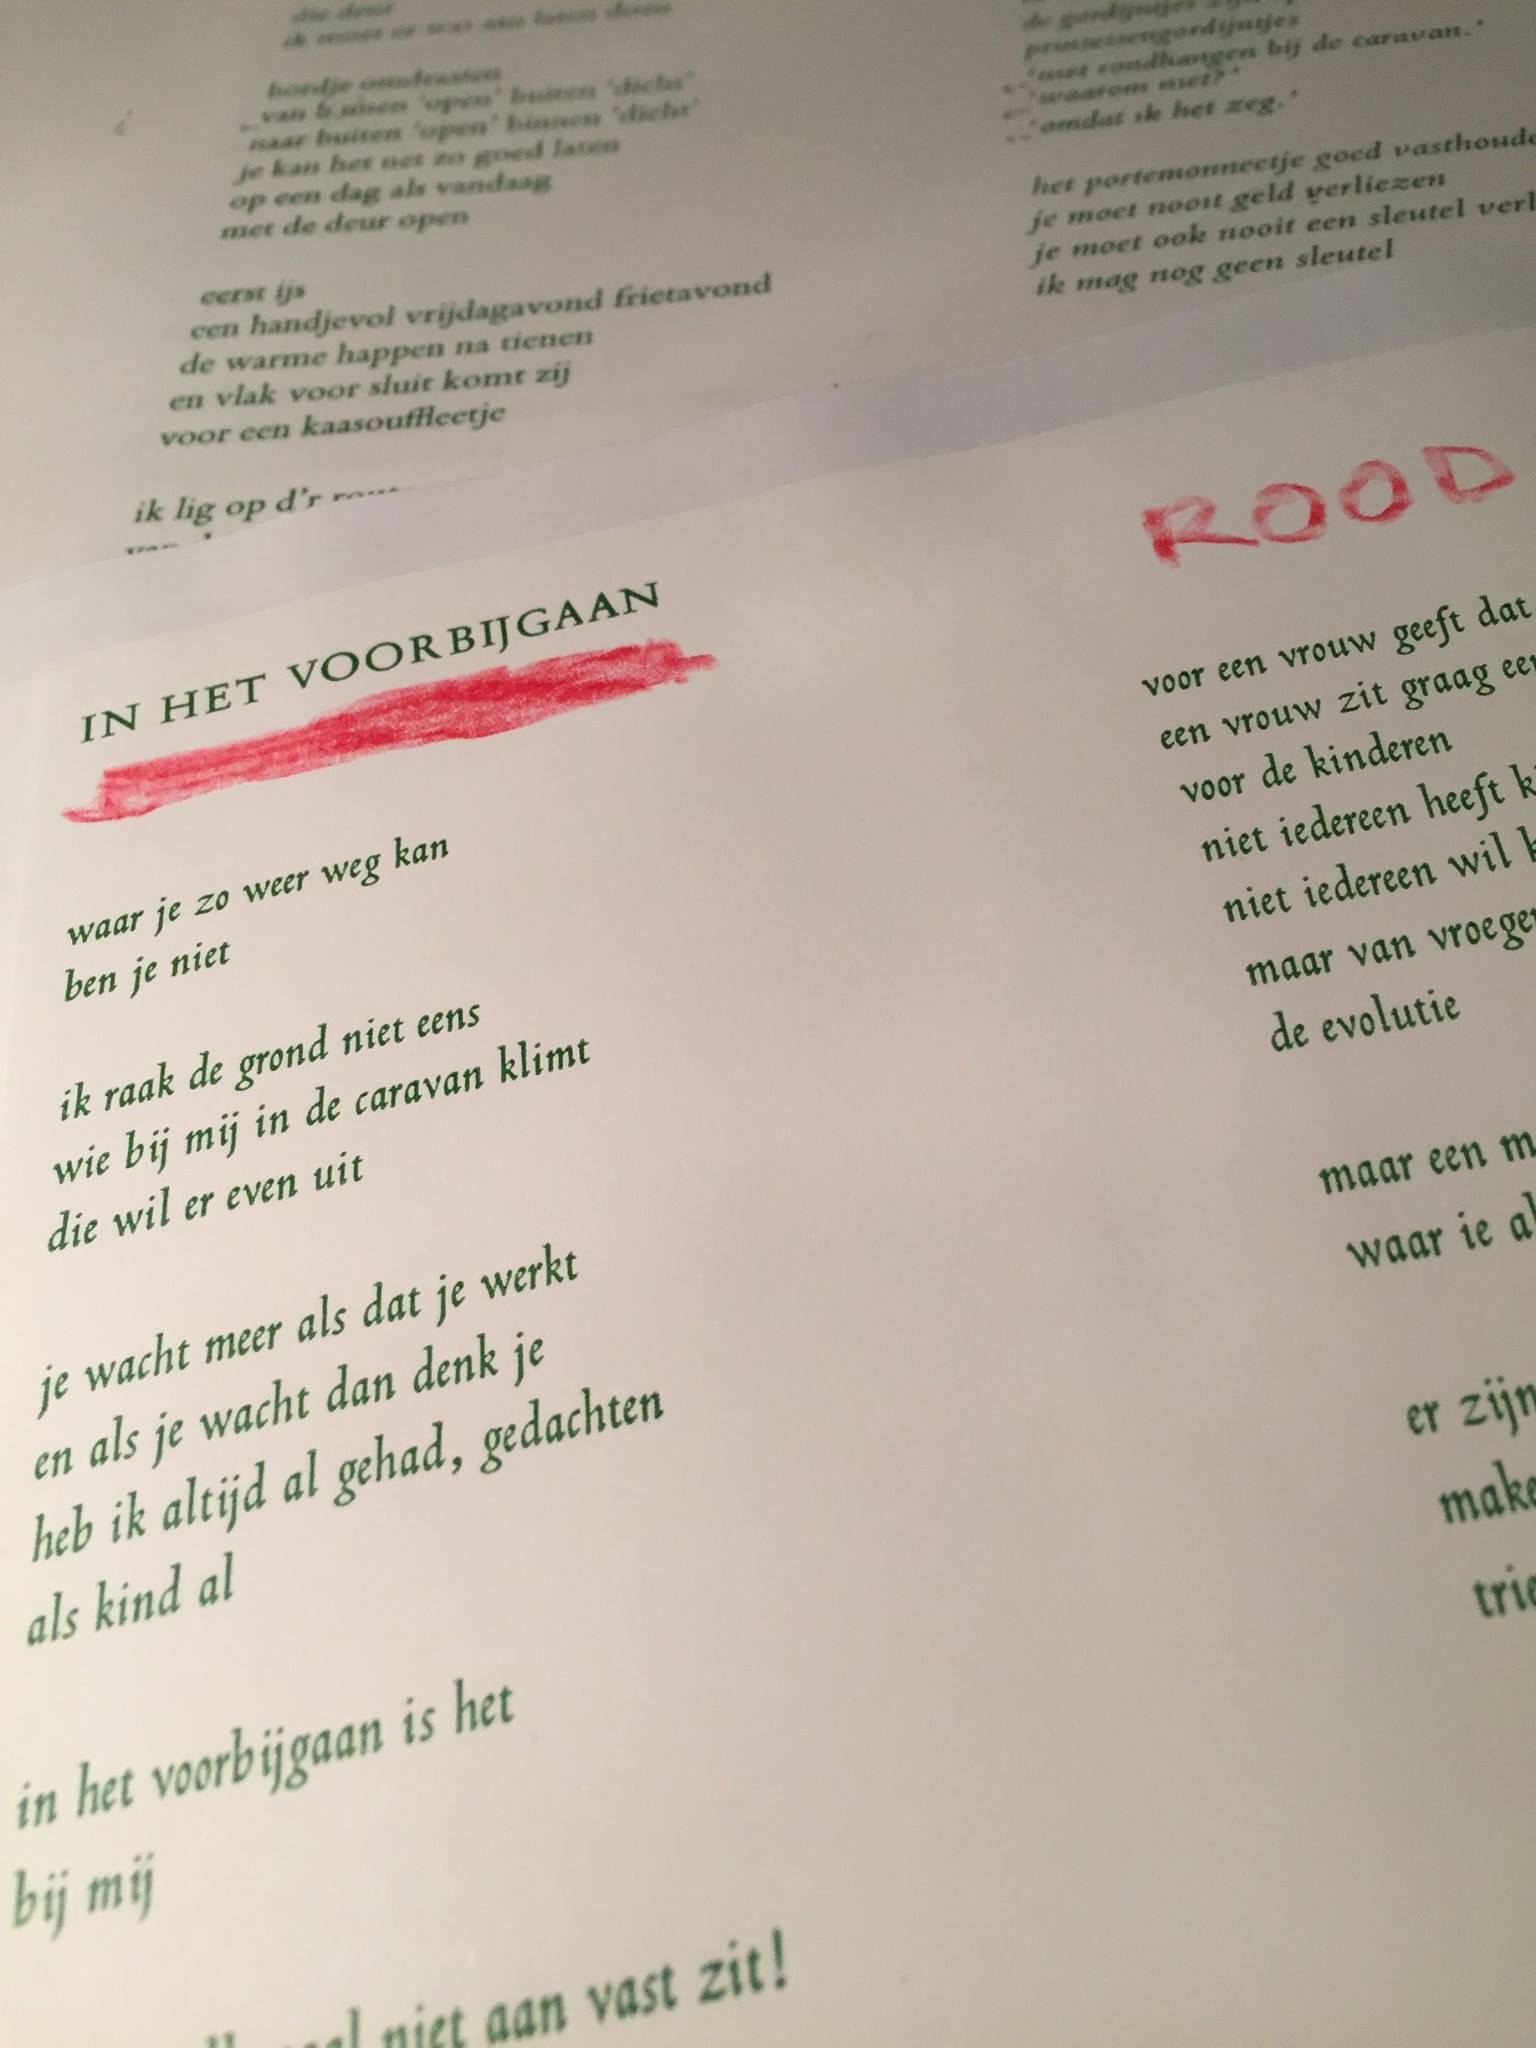 die deur
bordje omdraaien
van binnen 'open' buiten 'dicht'
naar buiten 'open' binnen 'dicht'
je kan het net zo goed laten
op een dag als vandaag
met de deur open
eerst ijs
een handjevol vrijdagavond frietavond
de warme happen na tienen
en vlak voor sluit komt zij
voor een kaasouffleetje
ik lig op d'r
de gordijntjes
prinsessengordijntjes
'niet rondhangen bij de caravan.'
'waarom niet?'
'omdat ik het zeg.'
het portemonneetje goed vasthoude
je moet nooit geld verliezen
je moet ook nooit een sleutel verl
ik mag nog geen sleutel
IN HET VOORBIJGAAN
waar je zo weer weg kan
ben je niet
ik raak de grond niet eens
wie bij mij in de caravan klimt
die wil er even uit
je wacht meer als dat je werkt
en als je wacht dan denk je
heb ik altijd al gehad, gedachten
als kind al
in het voorbijgaan is het
bij mij
niet aan vast zit!
ROOD
voor een vrouw geeft dat
een vrouw zit graag een
voor de kinderen
niet iedereen heeft k
niet iedereen wil k
maar van vroeger
de evolutie
maar een m
waar je al
er zijn
make
trie